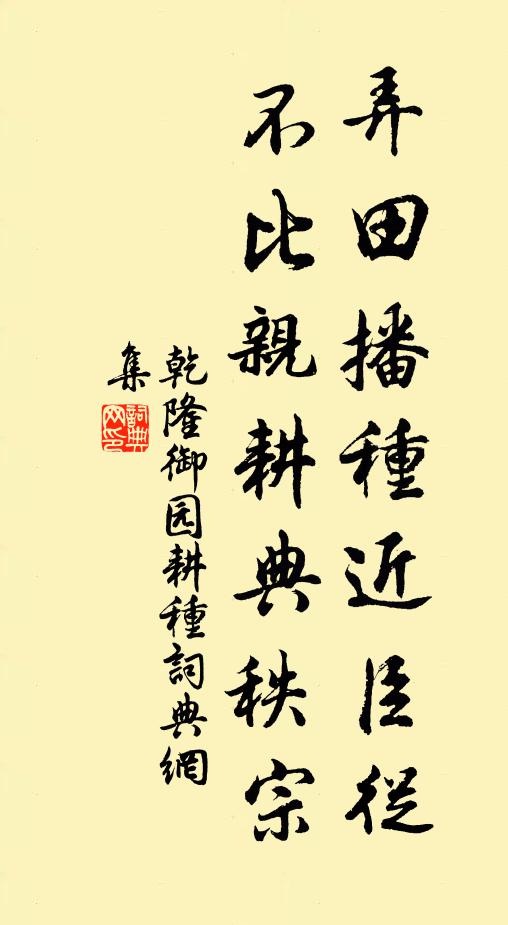 弄田播種近臣從
不比親耕典秩宗
乾隆御园耕種詞典網
集
詞典
网印